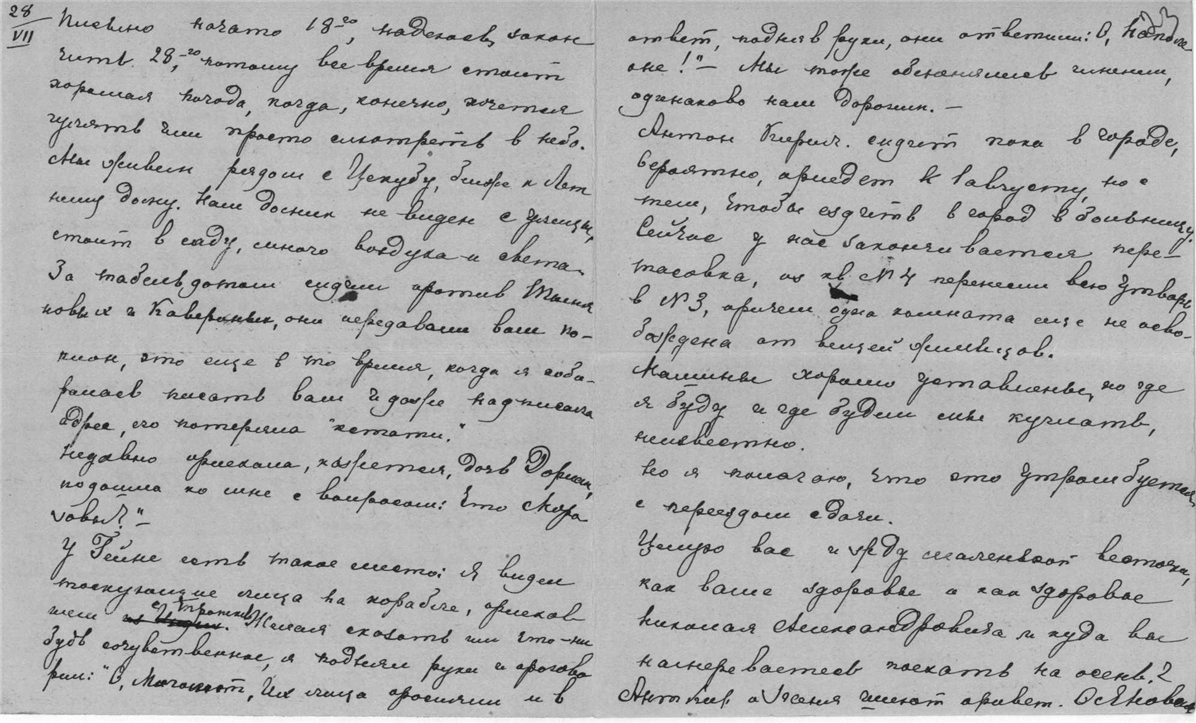 28
VII
Письмо начато 18-го, надеюсь закон
чить 28,-го потому все время стоит
хорошая погода, когда, конечно, хочется
гулять или просто смотреть в небо.
Мы живем рядом с Цекубу, ближе к Лет
нему дому. Наш домик не виден с улицы,
стоит в саду, много воздуха и света.
За табльдотом сидим против Тыня
новых и Кавериных, они передавали вам по-
клон, это еще в то время, когда я соби-
ралась писать вам и даже надписала
адрес, его потеряла "кстати."
Недавно приехала, кажется, дочь
подошла ко мне с вопросом: Это
У Гейне есть такое место: Я видел
тоскующие лица на корабле, приехав
шем с
Желая сказать им что-ни
будь сочувственное, я поднял руки и прогово
рил: "О, Магомет", Их лица просияли и в
ответ, подняв руки, они ответили: О, Наполе
оне!"- Мы тоже обменялись именем,
одинаково нам дорогим.-
Антон сидит пока в городе,
вероятно, приедет к 1 августу, но с
тем, чтобы ездить в город в больницу.
Сейчас у нас заканчивается пере-
тасовка, из кв. №4 перенесли всю утварь
в №3, причем одна комната еще не осво-
бождена от вещей жильцов.
Машины хорошо уставлены, но где
я буду и где будем мы кушать,
неизвестно.
Но я полагаю, что это утрамбуется
с переездом с дачи.
Целую вас и жду маленькой весточки,
как ваше здоровье и как здоровье
Николая Александровича и куда вы
намереваетесь поехать на осень?
Антон и Ксения шлют привет.